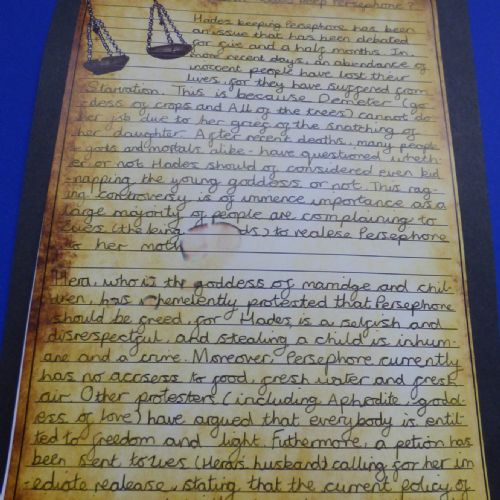 Hades keep Persephone?
Hades keeping Persephone has been
an issue that has been debated
for five and a half months. In
more recent days, an abundance of
inoccent people have lost their
lives, for they have suffered from
Starvation. This is because Demeter (go-
-dess of crops and All of the trees) cannot do
her job due to her grief of the snatching of
her daughter. After recent deaths, many people
- gods and mortals alike - have questioned wheth-
er or not Hades should of considered even kid-
-napping the young goddess or not. This rag-
ing controversy is of immence importance as a
large majority of people are complaining to
Zues (the king ds) to realese Persephone
to her moth
Hera, who is the goddess of marridge and chil-
dren, has vhemelently protested that Persephone
should be freed, for Hades is a selfish and
disrespectful, and stealing a child is inhum-
ane and a crime. Moreover, Persephone currently
has no accsess to food, fresh water and fresh
air. Other protesters (including Aphrodite, godd-
ess of love) have argued that everybody is entit-
led to freedom and light. Futhermore, a petion has
been sent to Zues (Hera's husband) calling for her im
ediate realease, stating that the current policy of